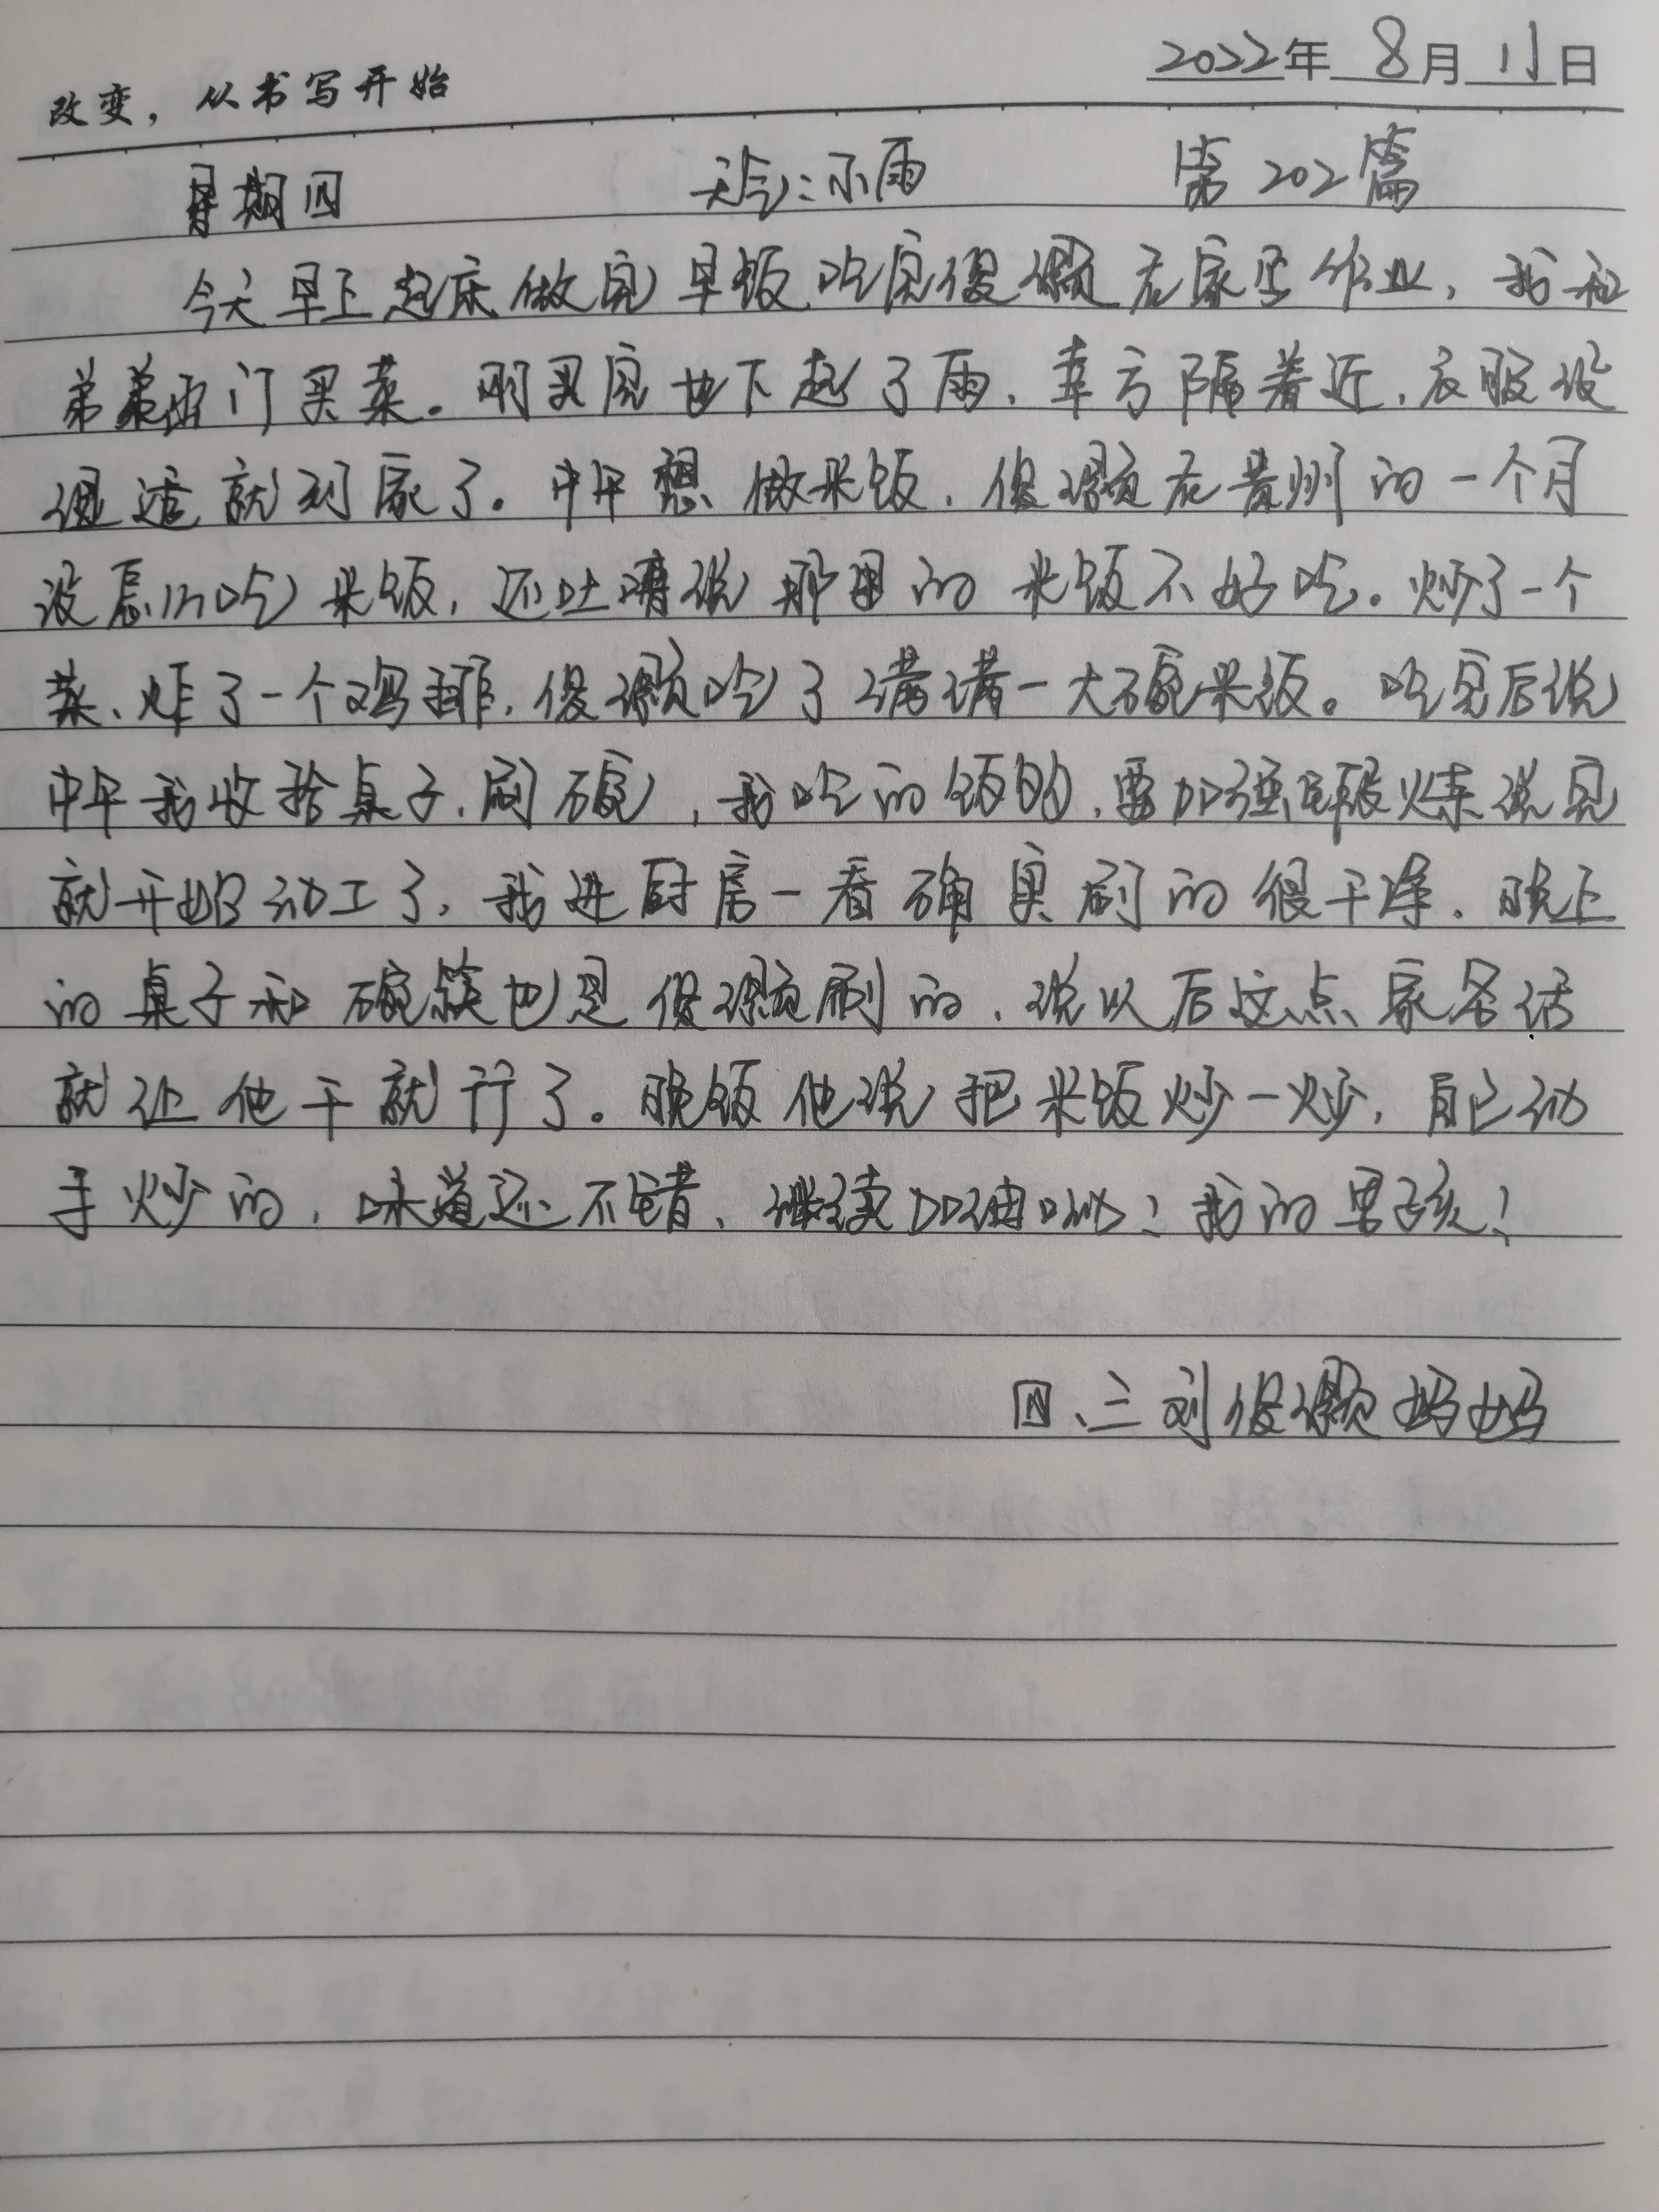 2022年 8月 11日
改变，从书写开始
星期四 天气：小雨 第202篇
今天早上起床做完早饭，吃完俊灏在家写作业，我和
弟弟出门买菜。刚买完也下起了雨，幸亏隔着近，衣服没
湿透就到家了。中午想做米饭，俊灏在贵州的一个月
没怎么吃米饭，还吐嘈说那里的米饭不好吃。炒了一个
菜、炸了一个鸡排，俊灏吃了满满一大碗米饭。吃完后说
中午我收拾桌子，刷碗，我吃的饭的，要加强锻炼说完
就开始动工了，我进厨房一看确实刷的很干净。晚上
的桌子和碗筷也是俊灏刷的，说以后这点家务活
就让他干就行了。晚饭他说把米饭炒一炒，自己动
手炒的，味道还不错、继续加油呦！我的男孩！
四、三刘俊灏妈妈